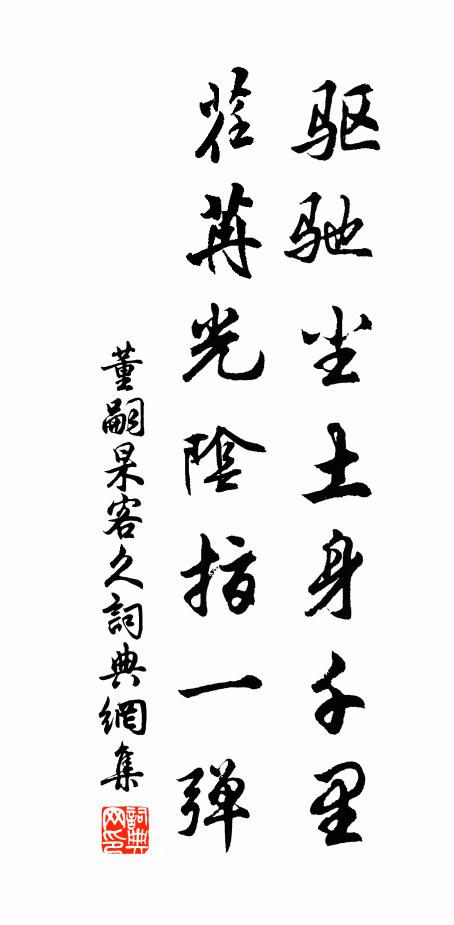 驱驰尘土身千里
荏苒光陰指一弹
董嗣杲客久詞典網集
詞典网印